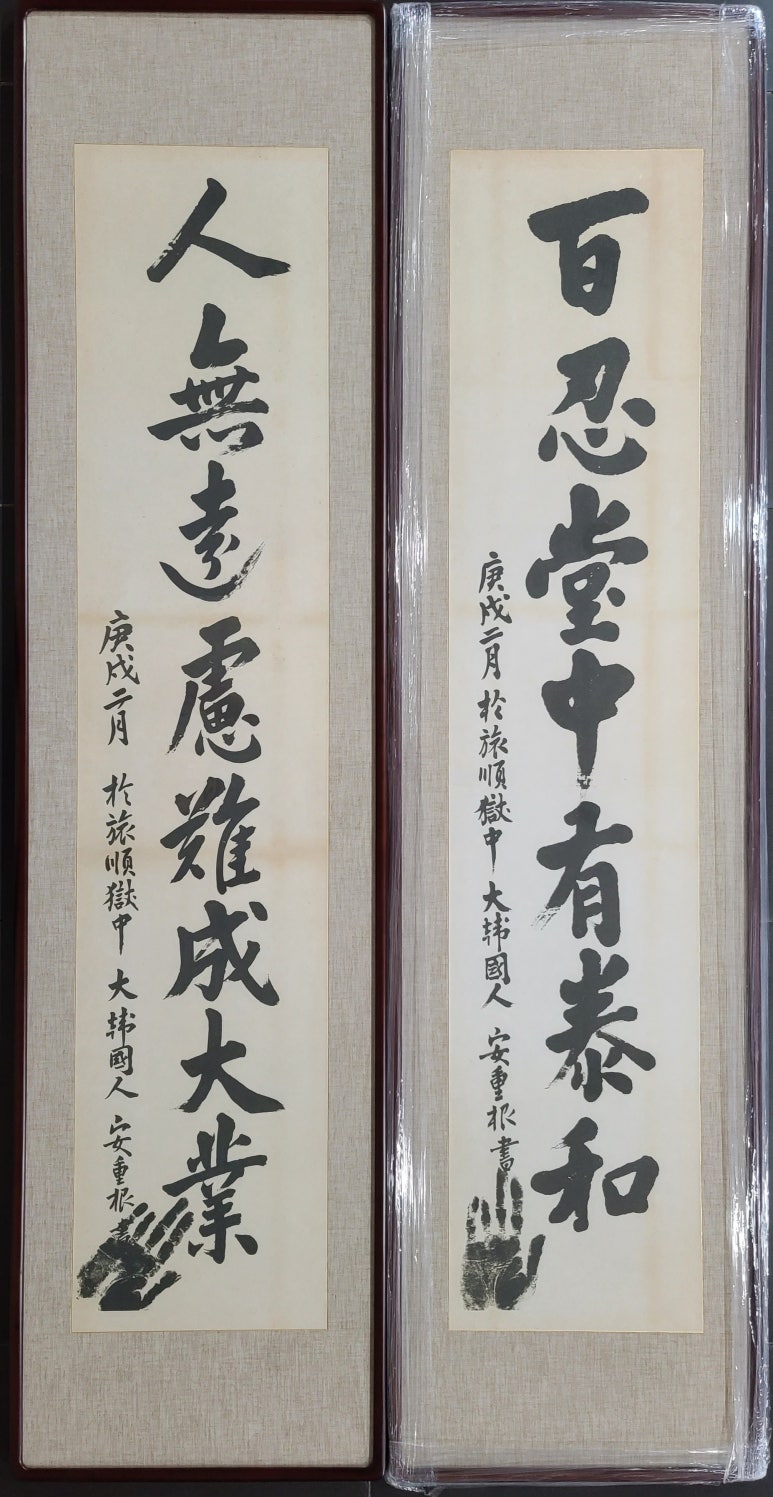 百忍堂中有泰和
庚戌二月 於旅順獄中 大韓國人 安重根書
人無遠慮難成大業
庚戌二月 於旅順獄中 大韓國人 安重根書